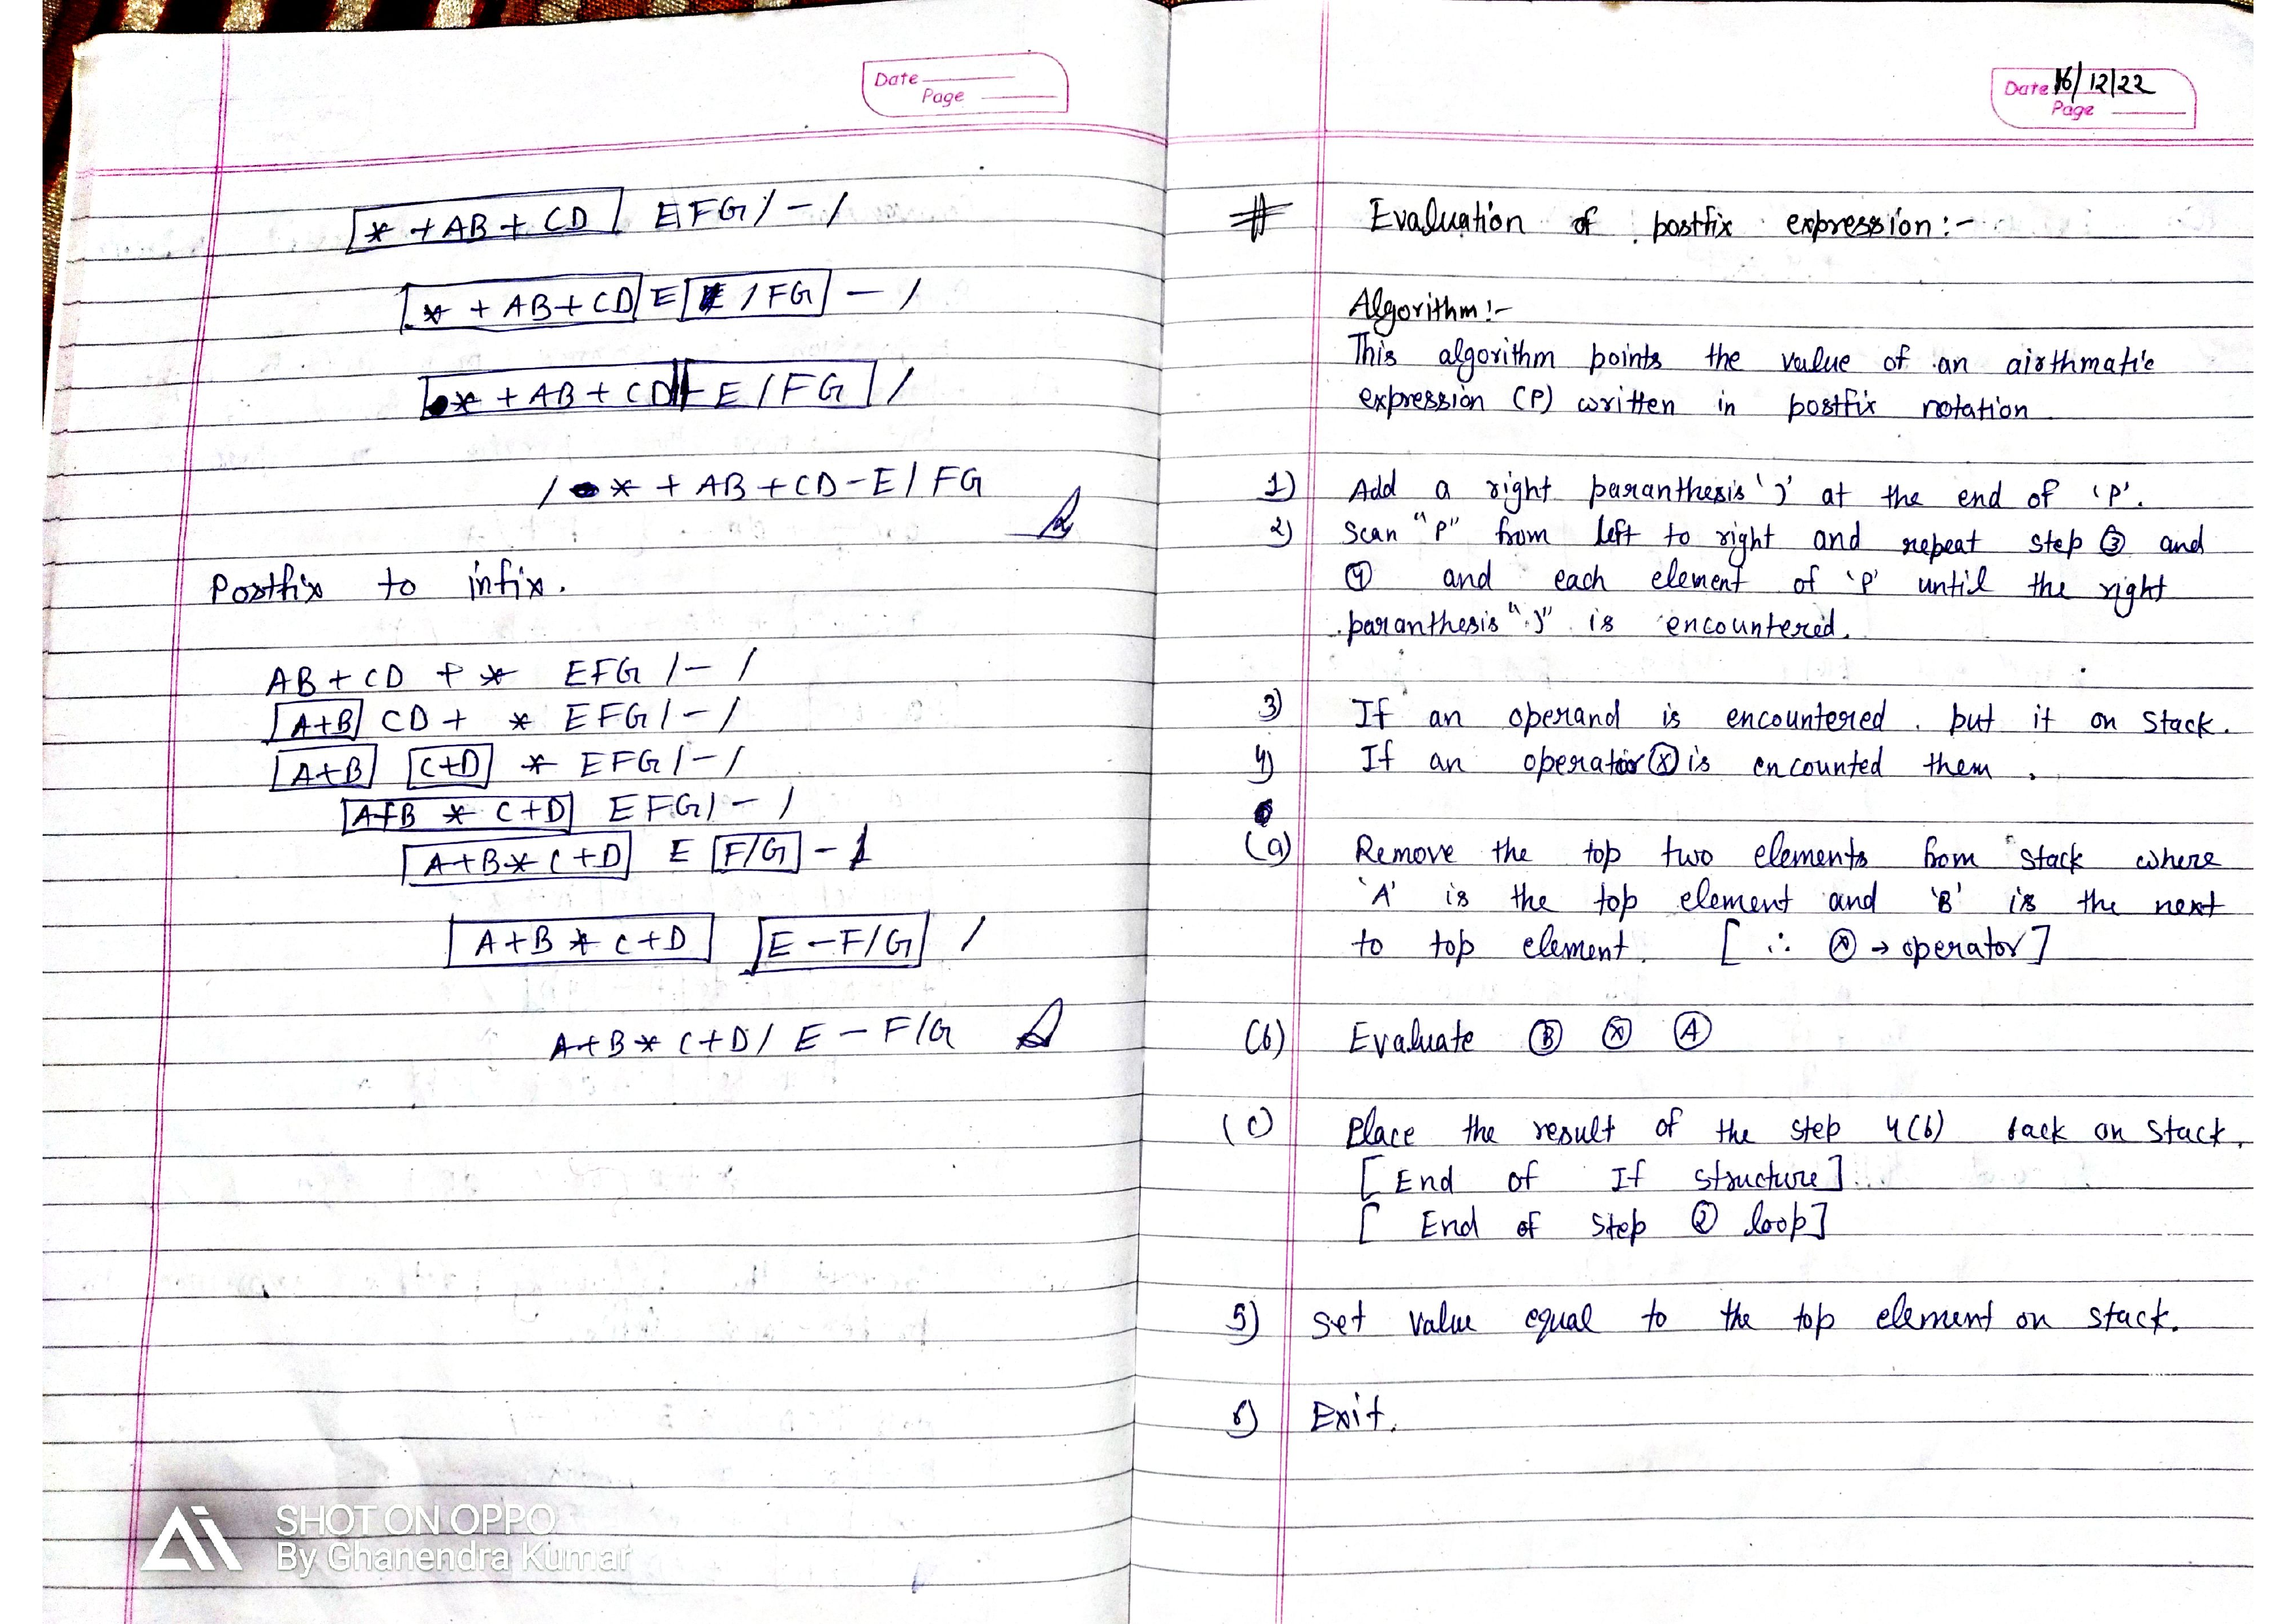 Date
Page
* + AB + CD E F G / - /
* + AB + CD E / FG - /
* + AB + CD - E / FG /
/ * + AB + CD - E / FG
Postfix to infix.
AB + CD + * EFG / - /
A+B CD + * EFG / - /
A+B C+D * EFG / - /
A+B * C+D EFG / - /
A+B * C+D E F/G - /
A+B * C+D E - F/G /
A+B * C+D / E - F/G
SHOT ON OPPO
By Ghanendra Kumar
Date 16/12/22
Page
# Evaluation of postfix expression :-
Algorithm :-
This algorithm points the value of an airthmatic
expression (P) written in postfix notation
1) Add a right paranthesis ')' at the end of 'P'.
2) Scan "P" from left to right and repeat step ③ and
④ and each element of 'P' until the right
paranthesis ")" is encountered.
3) If an operand is encountered. put it on stack.
4) If an operator ⓧ is encounted them.
(a) Remove the top two elements from stack where
'A' is the top element and 'B' is the next
to top element. [ ∴ ⓧ → operator ]
(b) Evaluate Ⓑ ⓧ Ⓐ
(c) Place the result of the step 4(b) back on stack.
[ End of If structure ]
[ End of step ② loop ]
5) set value equal to the top element on stack.
6) Exit.